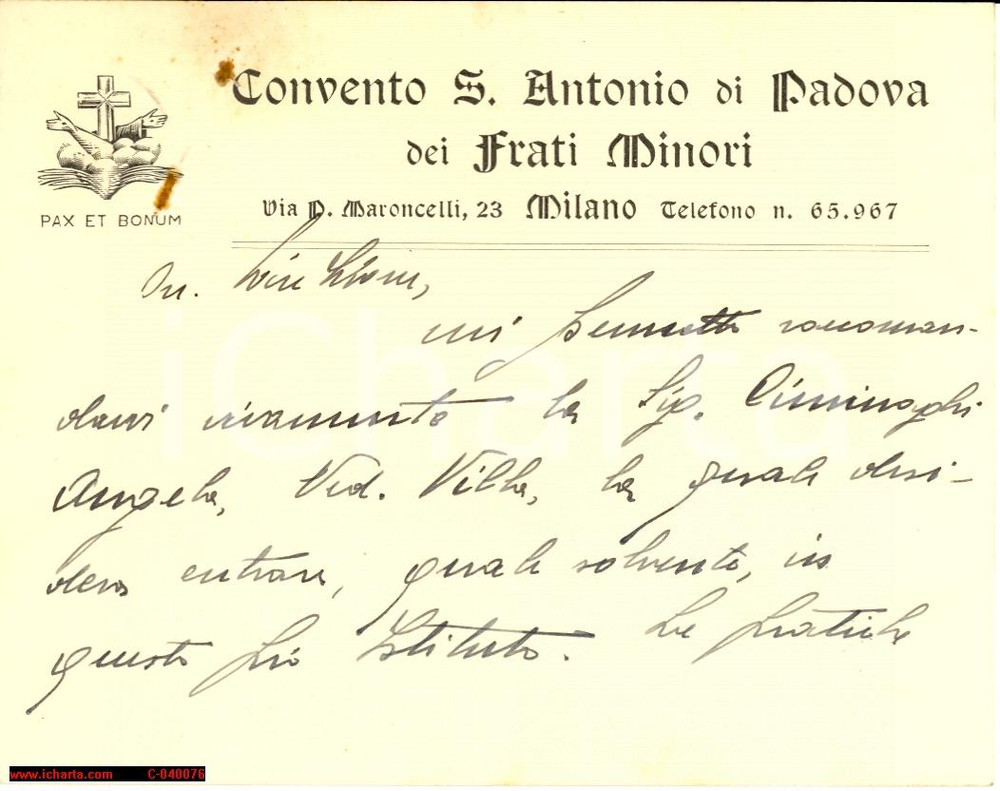 Convento S. Antonio di Padova
dei Frati Minori
Via P. Maroncelli, 23 Milano Telefono n. 65.967
PAX ET BONUM
On. Direzione,
mi permetto raccoman-
darvi vivamente la Sig. Ciminaghi
Angela, Ved. Villa, la quale desi-
dera entrare, quale solvente, in
questo Pio Istituto. Le pratiche
iCharta
www.icharta.com C-040076